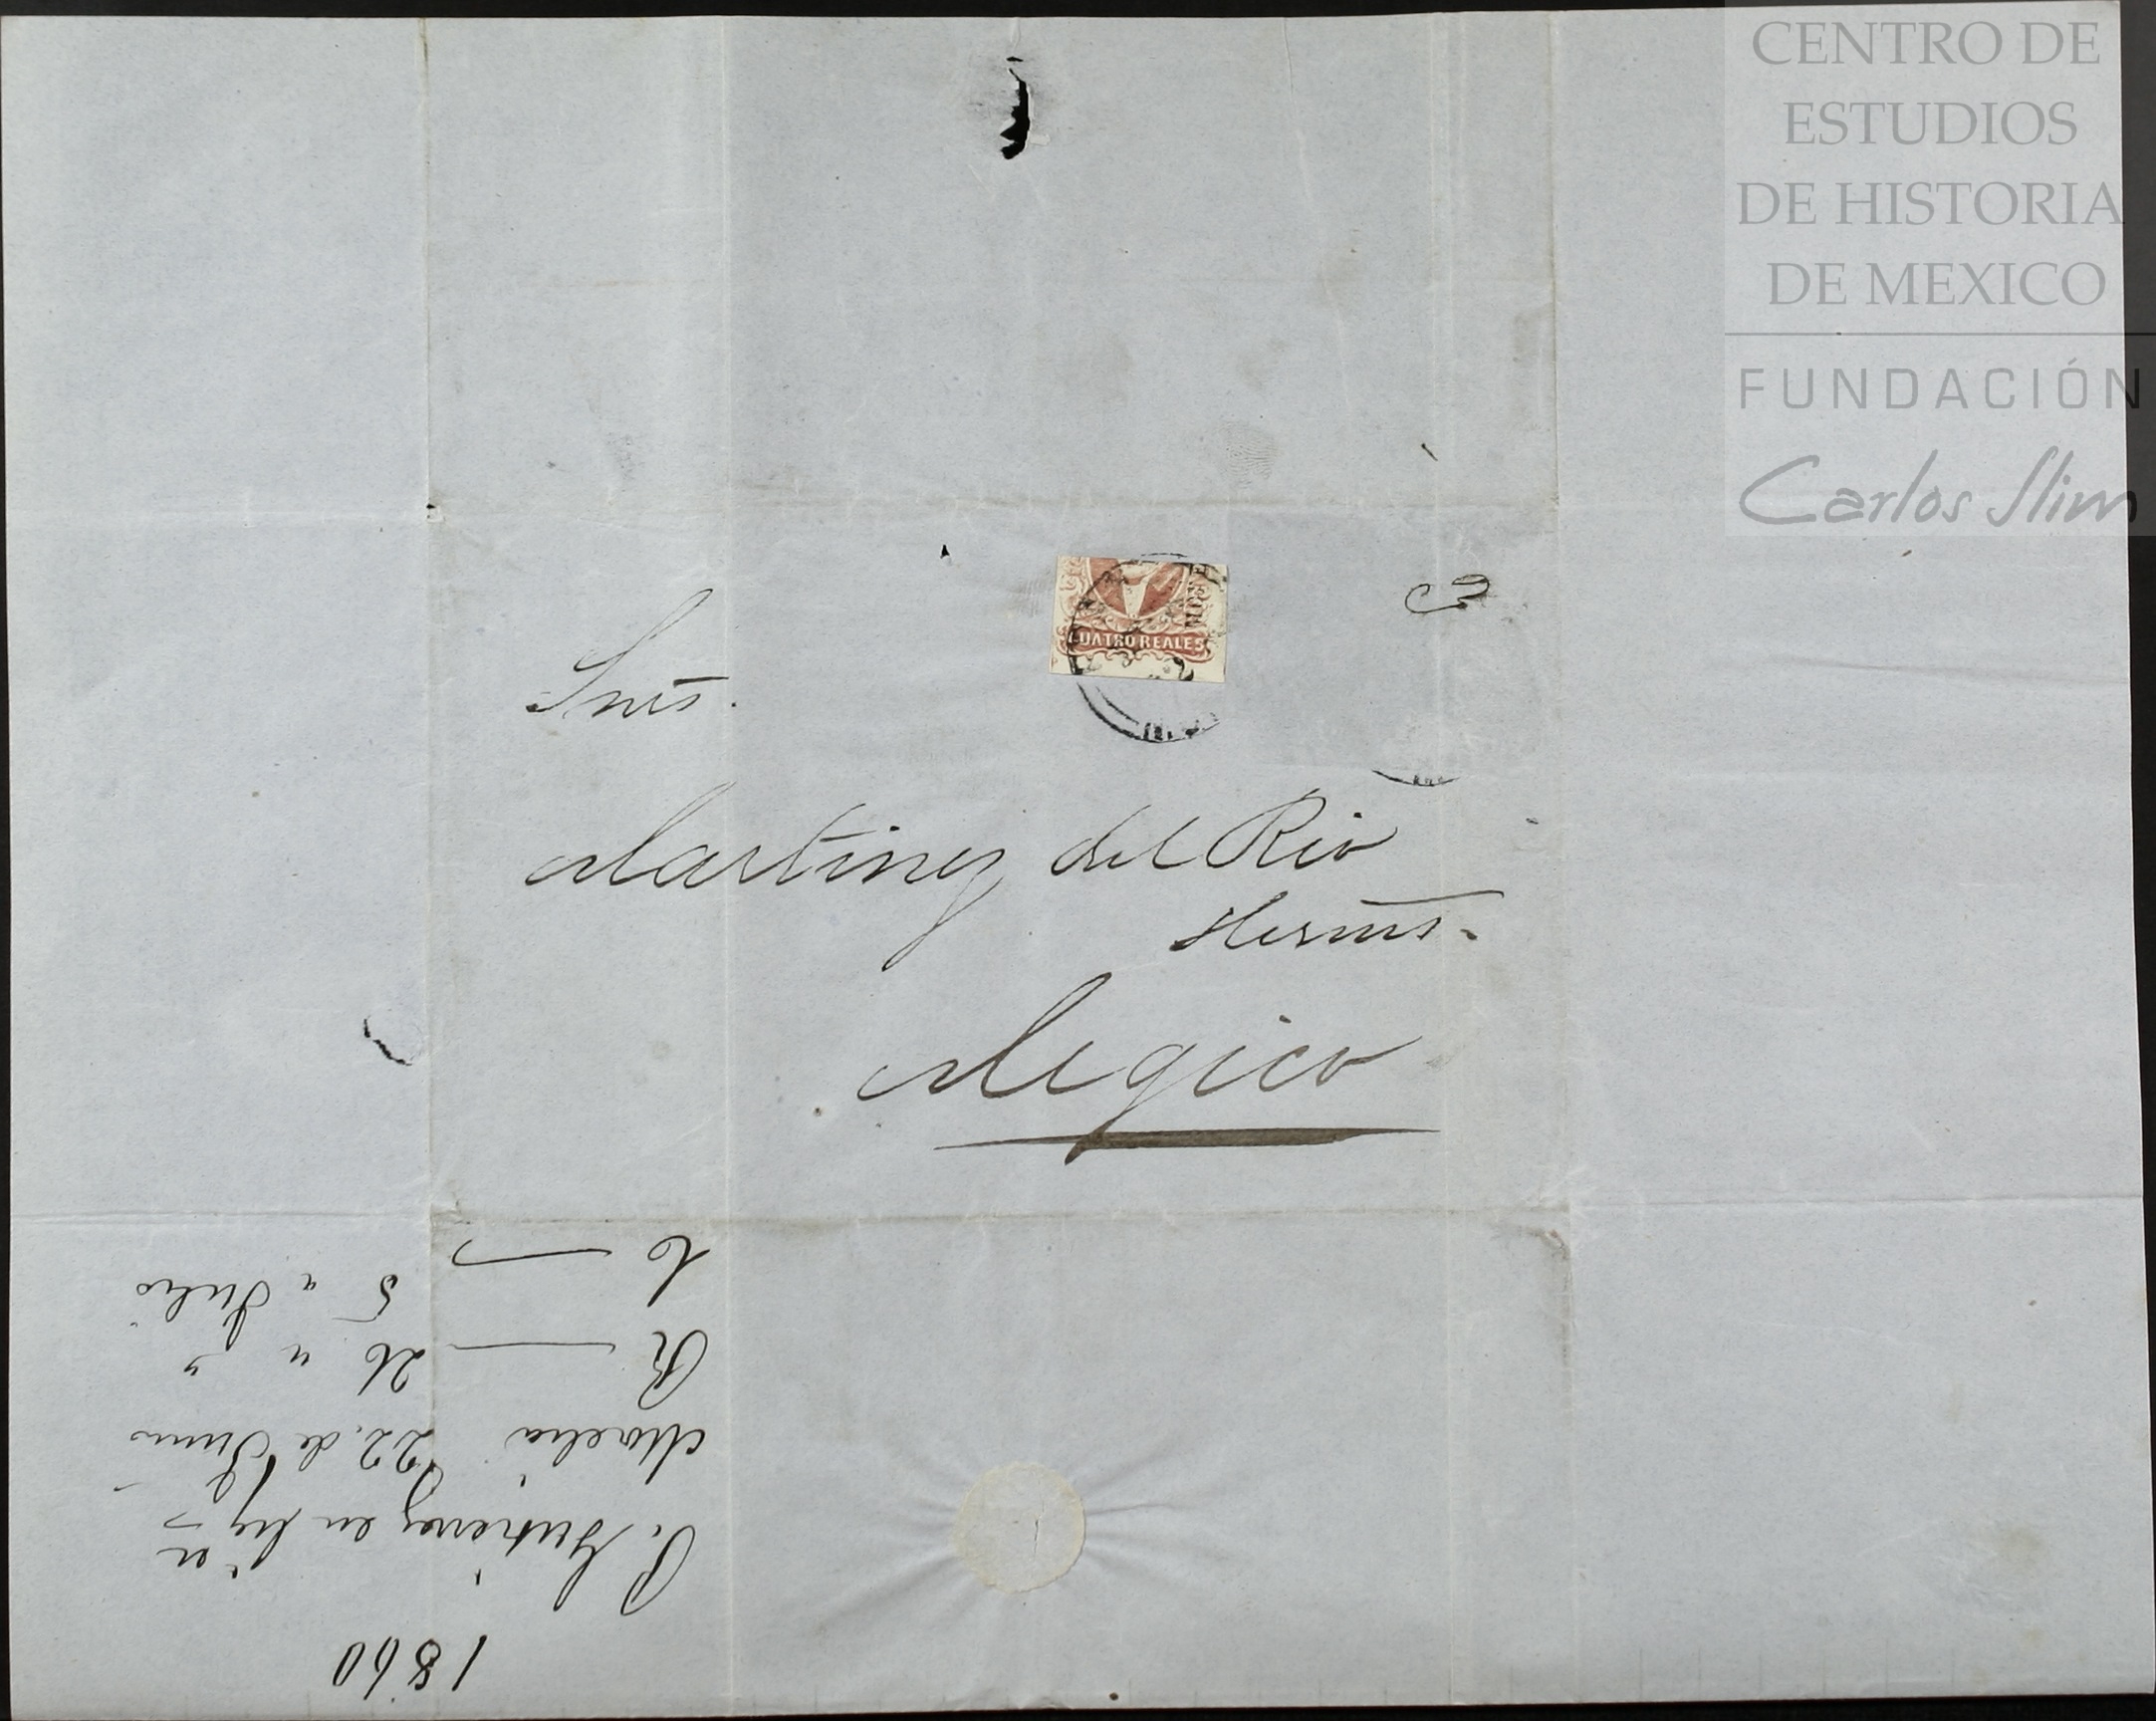 CENTRO DE
ESTUDIOS
DE HISTORIA
DE MEXICO
FUNDACIÓN
Carlos Slim
CUATRO REALES
Sres.
Martinez del Rio
Herms.
Megico
1860
P. Gutierrez en liqn
Morelia 22. de Junio
R 26 " "
C 5 " Julio